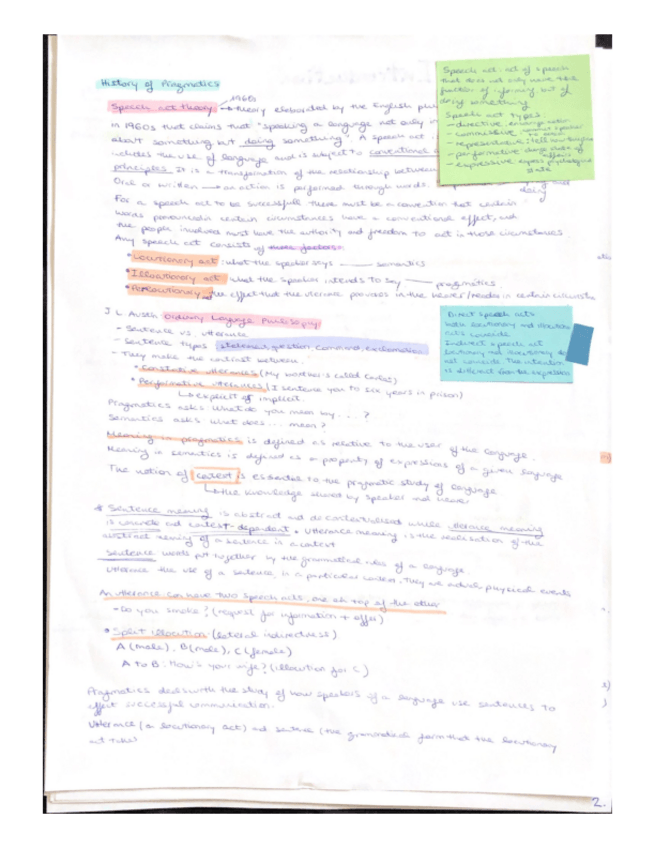 History of Pragmatics
1960s
Speech act theory → theory elaborated by the English
in 1960s that claims that "speaking a language not only
about something but doing something". A speech act
includes the use of language and is subject to conventional
principles. It is a transformation of the relationship between
Oral or written → an action is performed through words.
doing
For a speech act to be successful there must be a convention that certain
words pronounced in certain circumstances have a conventional effect, and
the people involved must have the authority and freedom to act in those circumstances.
Any speech act consists of three factors:
• Locutionary act: what the speaker says — semantics
• Illocutionary act what the speaker intends to say — pragmatics.
• Perlocutionary: the effect that the utterance provokes in the hearer/reader in certain
J L Austin Ordinary Language Philosophy
- Sentence vs. utterance
- Sentence types statement, question, command, exclamation
- They make the contrast between:
• Constative utterances (My brother's called Carlos)
• Performative utterances (I sentence you to six years in prison)
explicit or implicit.
Pragmatics asks what do you mean by . . . ?
Semantics asks what does . . . mean?
Meaning in pragmatics is defined as relative to the user of the language.
Meaning in semantics is defined as a property of expressions of a given language
The notion of context is essential to the pragmatic study of language
the knowledge shared by speaker and hearer
* Sentence meaning is abstract and decontextualised while utterance meaning
is concrete and context-dependent. Utterance meaning is the realisation of the
abstract meaning of a sentence in a context
Sentence words put together by the grammatical rules of a language
Utterance the use of a sentence, in a particular context. They are physical events
An utterance can have two speech acts, one on top of the other
- Do you smoke? (request for information + offer)
• Split illocution (lateral indirectness)
A (male), B (male), C (female)
A to B: How's your wife? (illocution for C)
Pragmatics deals with the study of how speakers of a language use sentences to
effect successful communication.
Utterance (a locutionary act) and sentence (the grammatical form that the locutionary
act takes)
Speech act: act of speech
that does not only have the
function of informing but of
doing something
Speech act types:
- directive
- commissive
- representative: tell
- performative change state of
affairs
- expressive express psychological
state
Direct speech acts
both locutionary and illocution
acts coincide
Indirect speech act
locutionary and illocutionary do
not coincide. The intention
is different from the expression
2.